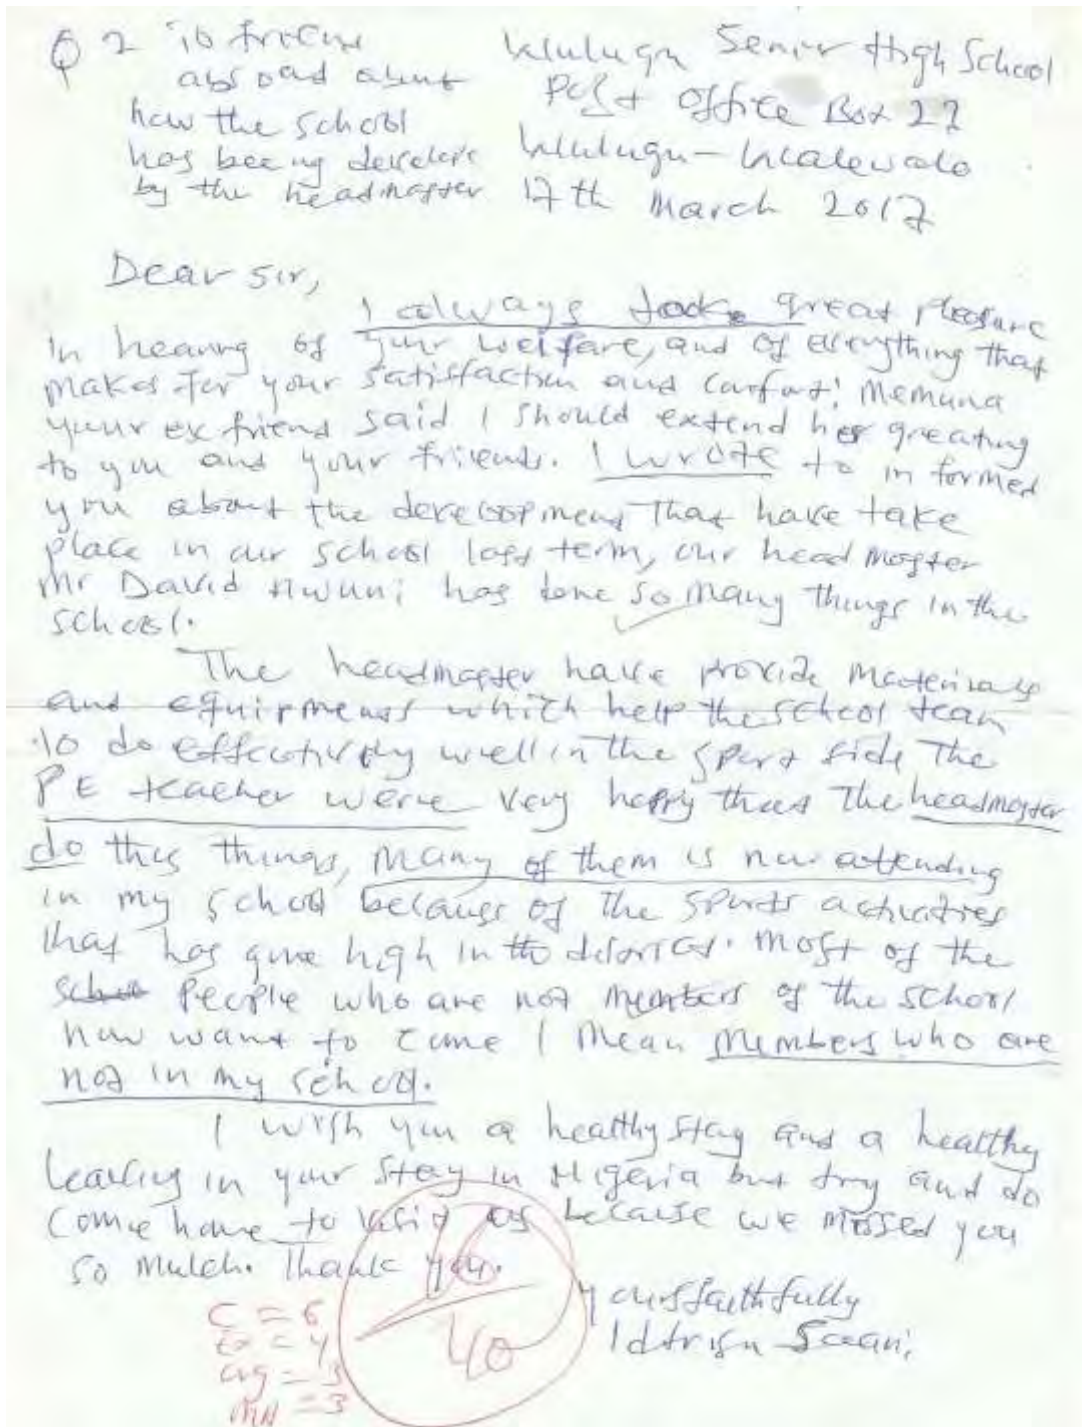 Q 2 to friend
abroad about
how the school
has being develope
by the headmaster
Wulugu Senior High School
Post Office Box 22
Wulugu - Walewale
17th March 2017
Dear sir,
I always took great pleasure
in hearing of your welfare, and of everything that
makes for your satisfaction and comfort. Memuna
your ex friend said I should extend her greating
to you and your friends. I wrote to in formed
you about the development that have take
place in our school last term, our head master
Mr David has done so many things in the
school.
The headmaster have provide materials
and equipments which help the school team
to do effectively well in the sport side The
PE teacher were very happy that the headmaster
do this things, many of them is now attending
in my school because of the sports activities
that has gone high in the district. Most of the
people who are not members of the school
now want to come I mean members who are
not in my school.
I wish you a healthy stay and a healthy
in your stay in Nigeria but try and do
come home to visit us because we missed you
so mulch. Thank you.
Yours faithfully
C = 6
Ex = 4
Org = 3
MA = 3
16
40